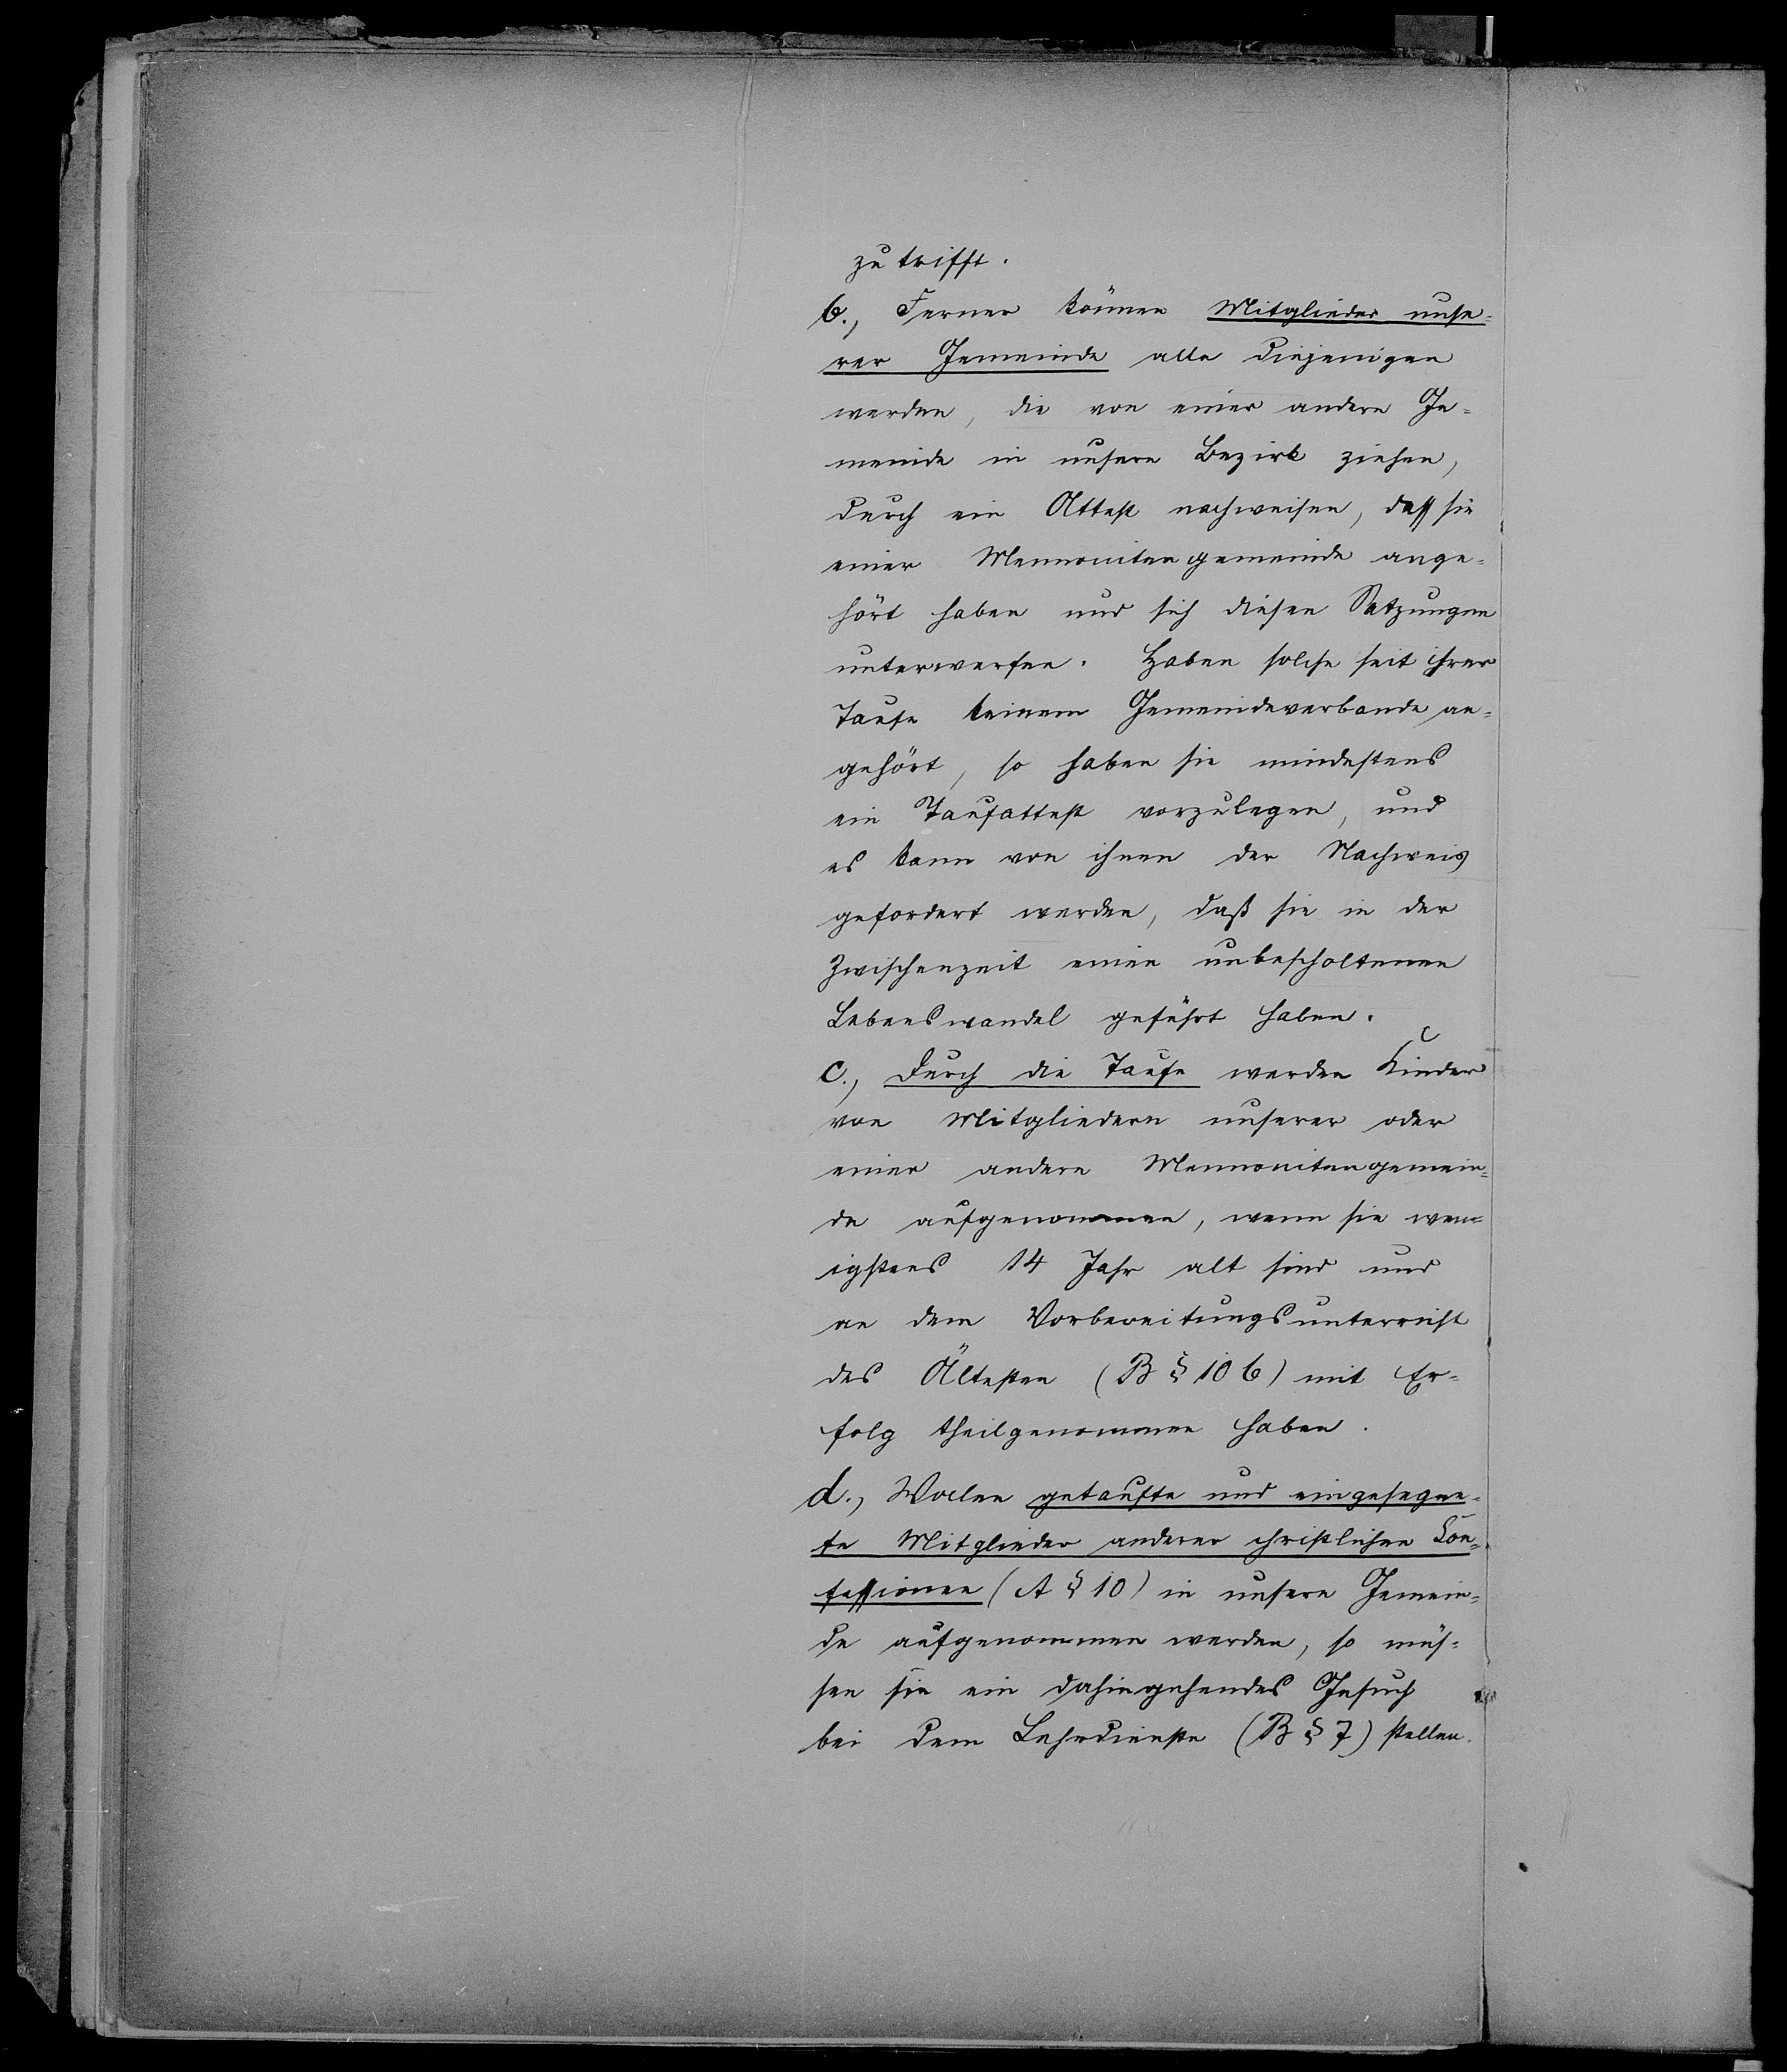 zutrifft.
b., Ferner können Mitglieder unse-
rer Gemeinde alle diejenigen
werden, die von einer andern Ge-
meinde in unsern Bezirk ziehen,
durch ein Attest nachweisen, dass sie
einer Mennonitengemeinde ange-
hört haben und sich diesen Satzungen
unterwerfen. Haben solche seit ihrer
Taufe keinem Gemeindeverbande an-
gehört, so haben sie mindestens
ein Taufattest vorzulegen, und
es kann von ihnen der Nachweis
gefordert werden, daß sie in der
Zwischenzeit einen unbescholtenen
Lebenswandel geführt haben.
c., Durch die Taufe werden Kinder
von Mitgliedern unserer oder
einer andern Mennonitengemein-
de aufgenommen, wenn sie wen-
igstens 14 Jahr alt sind und
an dem Vorbereitungsunterricht
des Ältesten (B § 10 b) mit Er-
folg theilgenommen haben.
d., Wollen getaufte und eingesegne-
te Mitglieder anderer christlichen Con-
fessionen (A § 10) in unsere Gemein-
de aufgenommen werden, so müs-
sen sie ein dahingehendes Gesuch
bei dem Lehrdienste (B § 7) stellen.